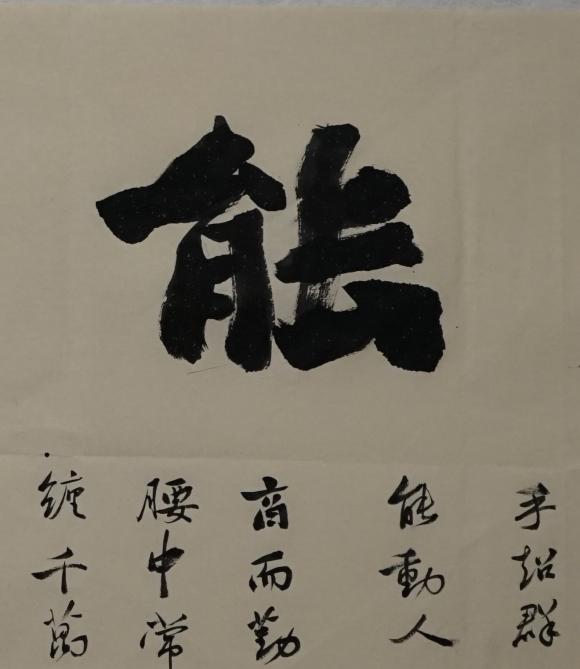 能
手超群
能動人
商而勤
腰中常
缠千萬